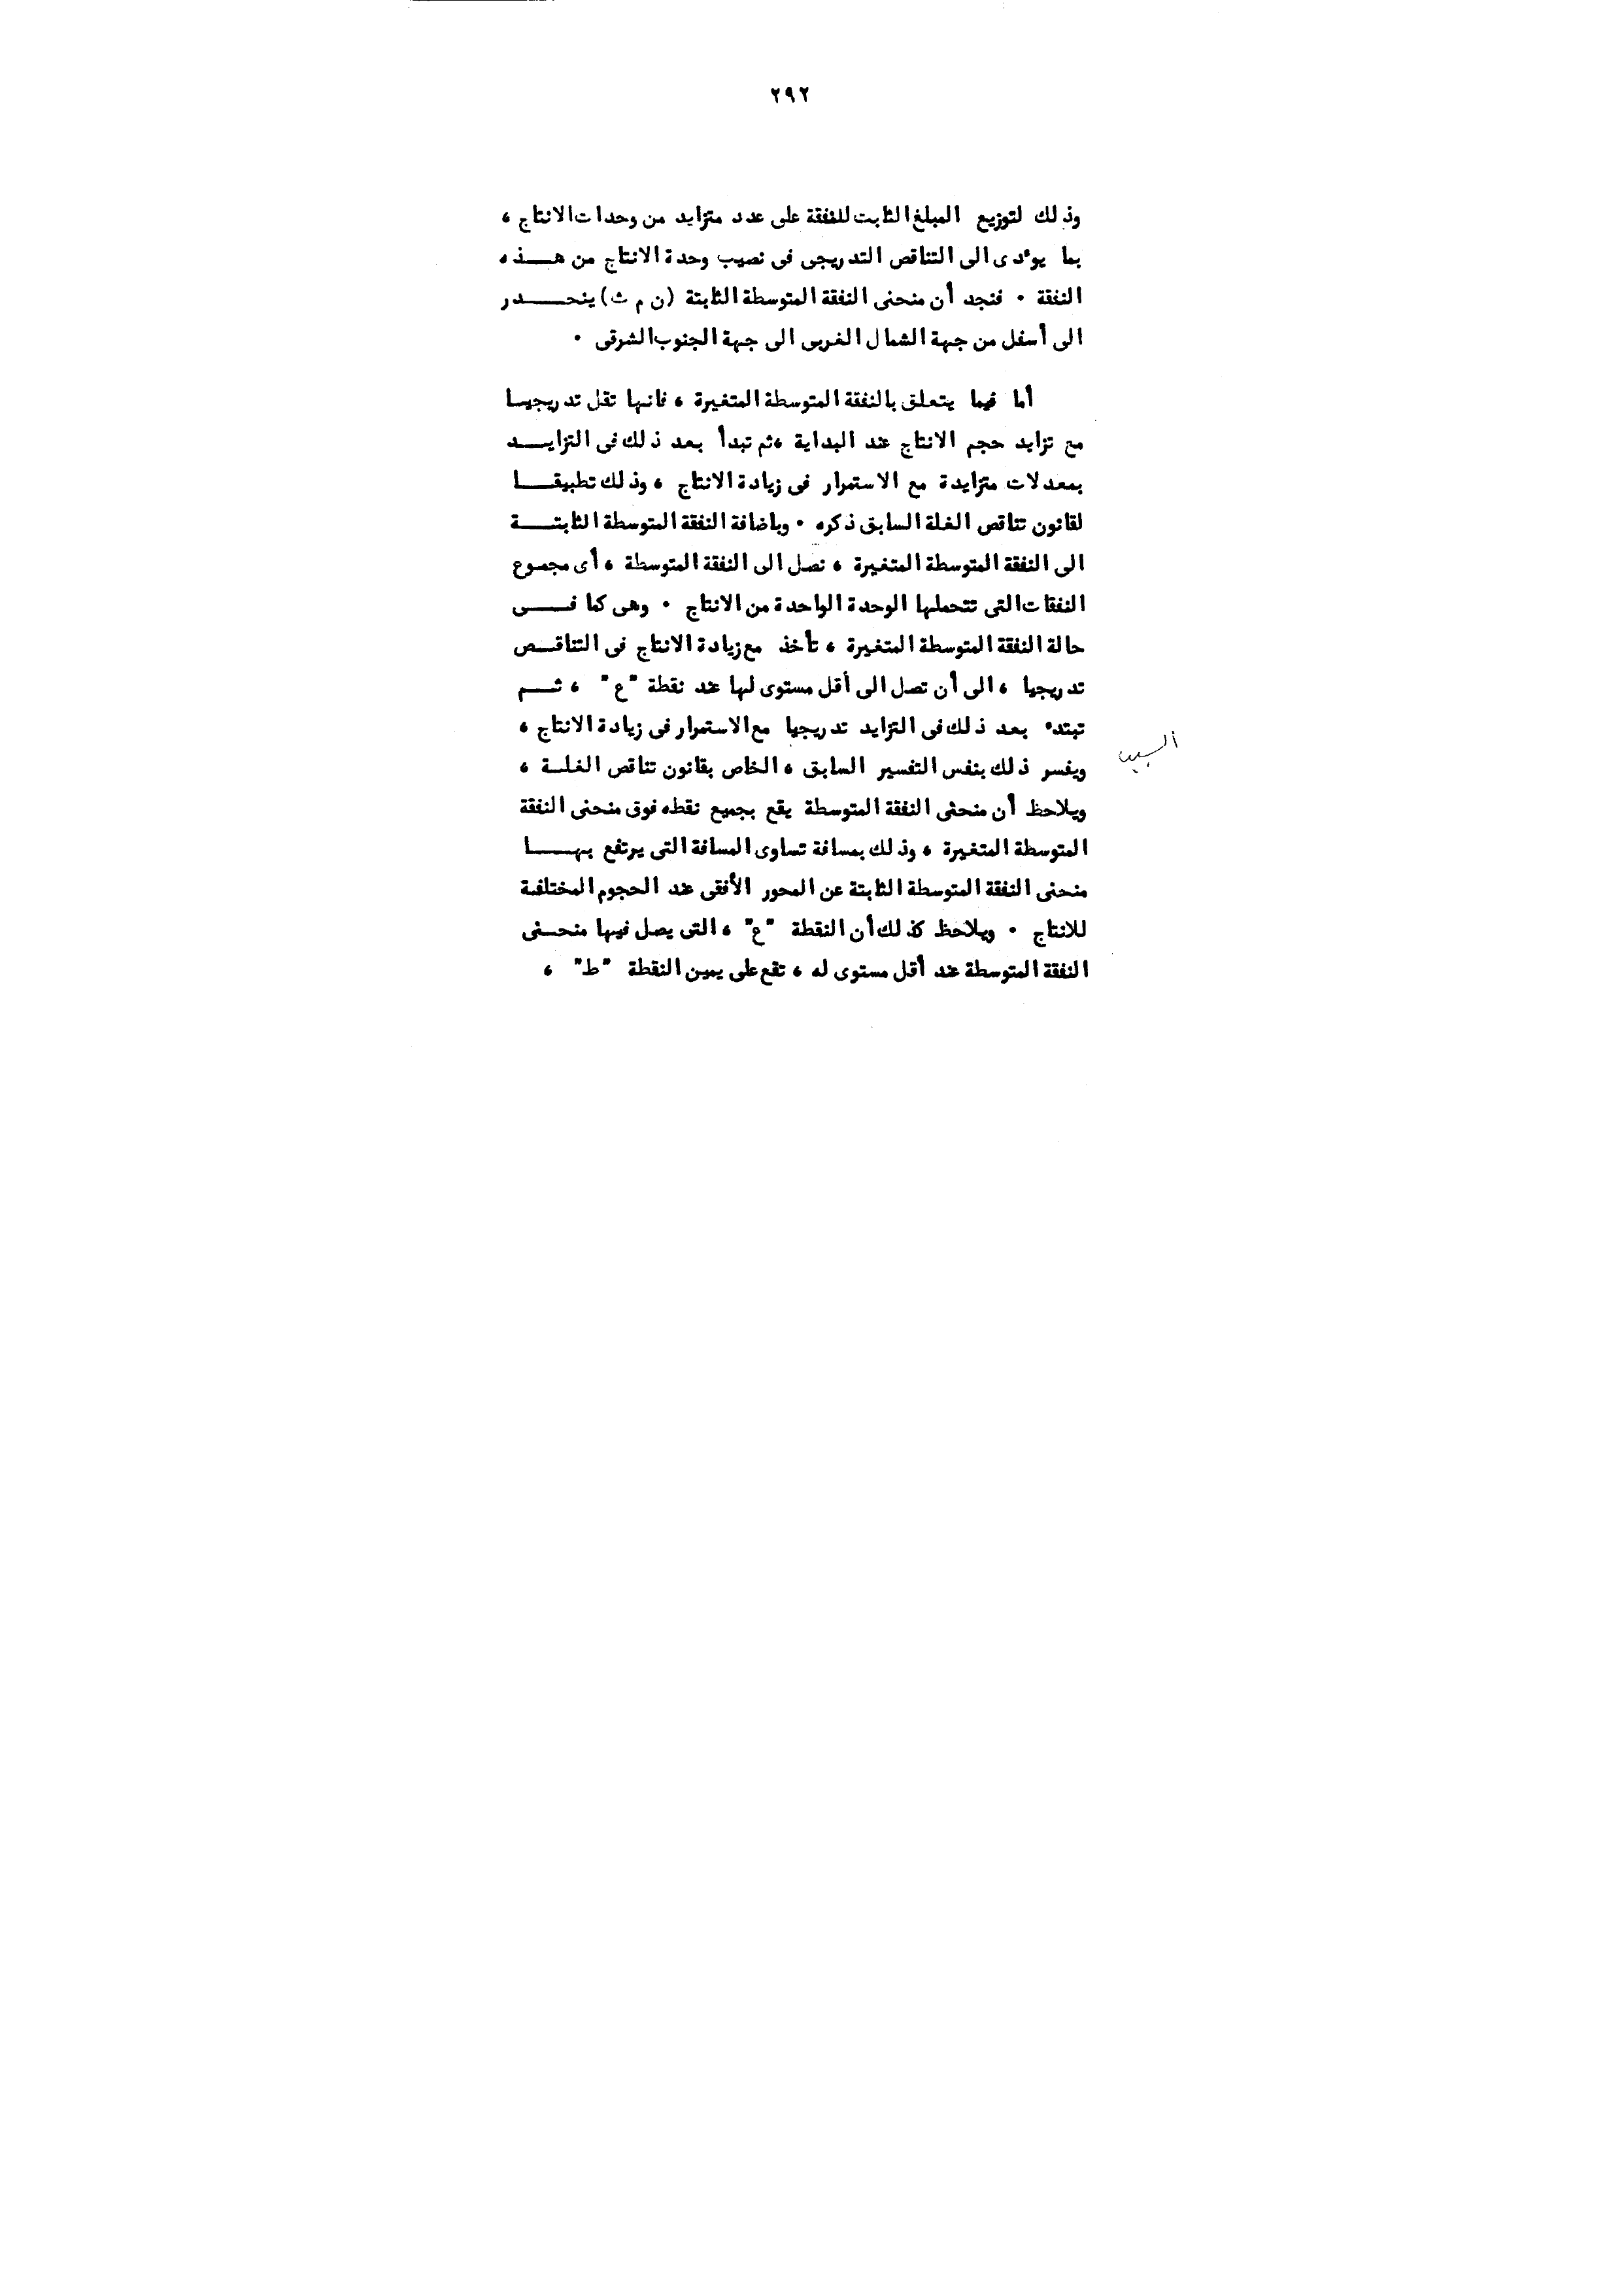 ٢٩٢
وذلك لتوزيع المبلغ الثابت للنفقة على عدد متزايد من وحدات الانتاج ،
بما يؤدى الى التناقص التدريجى فى نصيب وحدة الانتاج من هـــذه
النفقة ٠ فنجد أن منحنى النفقة المتوسطة الثابتة (ن م ث) ينحـــدر
الى أسفل من جهة الشمال الغربى الى جهة الجنوب الشرقى ٠
أما فيما يتعلق بالنفقة المتوسطة المتغيرة ، فانها تقل تدريجيـا
مع تزايد حجم الانتاج عند البداية ، ثم تبدأ بعد ذلك فى التزايـــد
بمعدلات متزايدة مع الاستمرار فى زيادة الانتاج ، وذلك تطبيقـــا
لقانون تناقص الغلة السابق ذكره ٠ وباضافة النفقة المتوسطة الثابتـــة
الى النفقة المتوسطة المتغيرة ، نصل الى النفقة المتوسطة ، أى مجموع
النفقات التى تتحملها الوحدة الواحدة من الانتاج ٠ وهى كما فـــى
حالة النفقة المتوسطة المتغيرة ، تأخذ مع زيادة الانتاج فى التناقـص
تدريجيا ، الى أن تصل الى أقل مستوى لها عند نقطة "ع" ، ثـــم
تبتدء بعد ذلك فى التزايد تدريجيا مع الاستمرار فى زيادة الانتاج ،
السبب
ويفسر ذلك بنفس التفسير السابق ، الخاص بقانون تناقص الغلـة ،
ويلاحظ أن منحنى النفقة المتوسطة يقع بجميع نقطه فوق منحنى النفقة
المتوسطة المتغيرة ، وذلك بمسافة تساوى المسافة التى يرتفع بهـــا
منحنى النفقة المتوسطة الثابتة عن المحور الأفقى عند الحجوم المختلفة
للانتاج ٠ ويلاحظ كذلك أن النقطة "ع" ، التى يصل فيها منحـنى
النفقة المتوسطة عند أقل مستوى له ، تقع على يمين النقطة "ط" ،